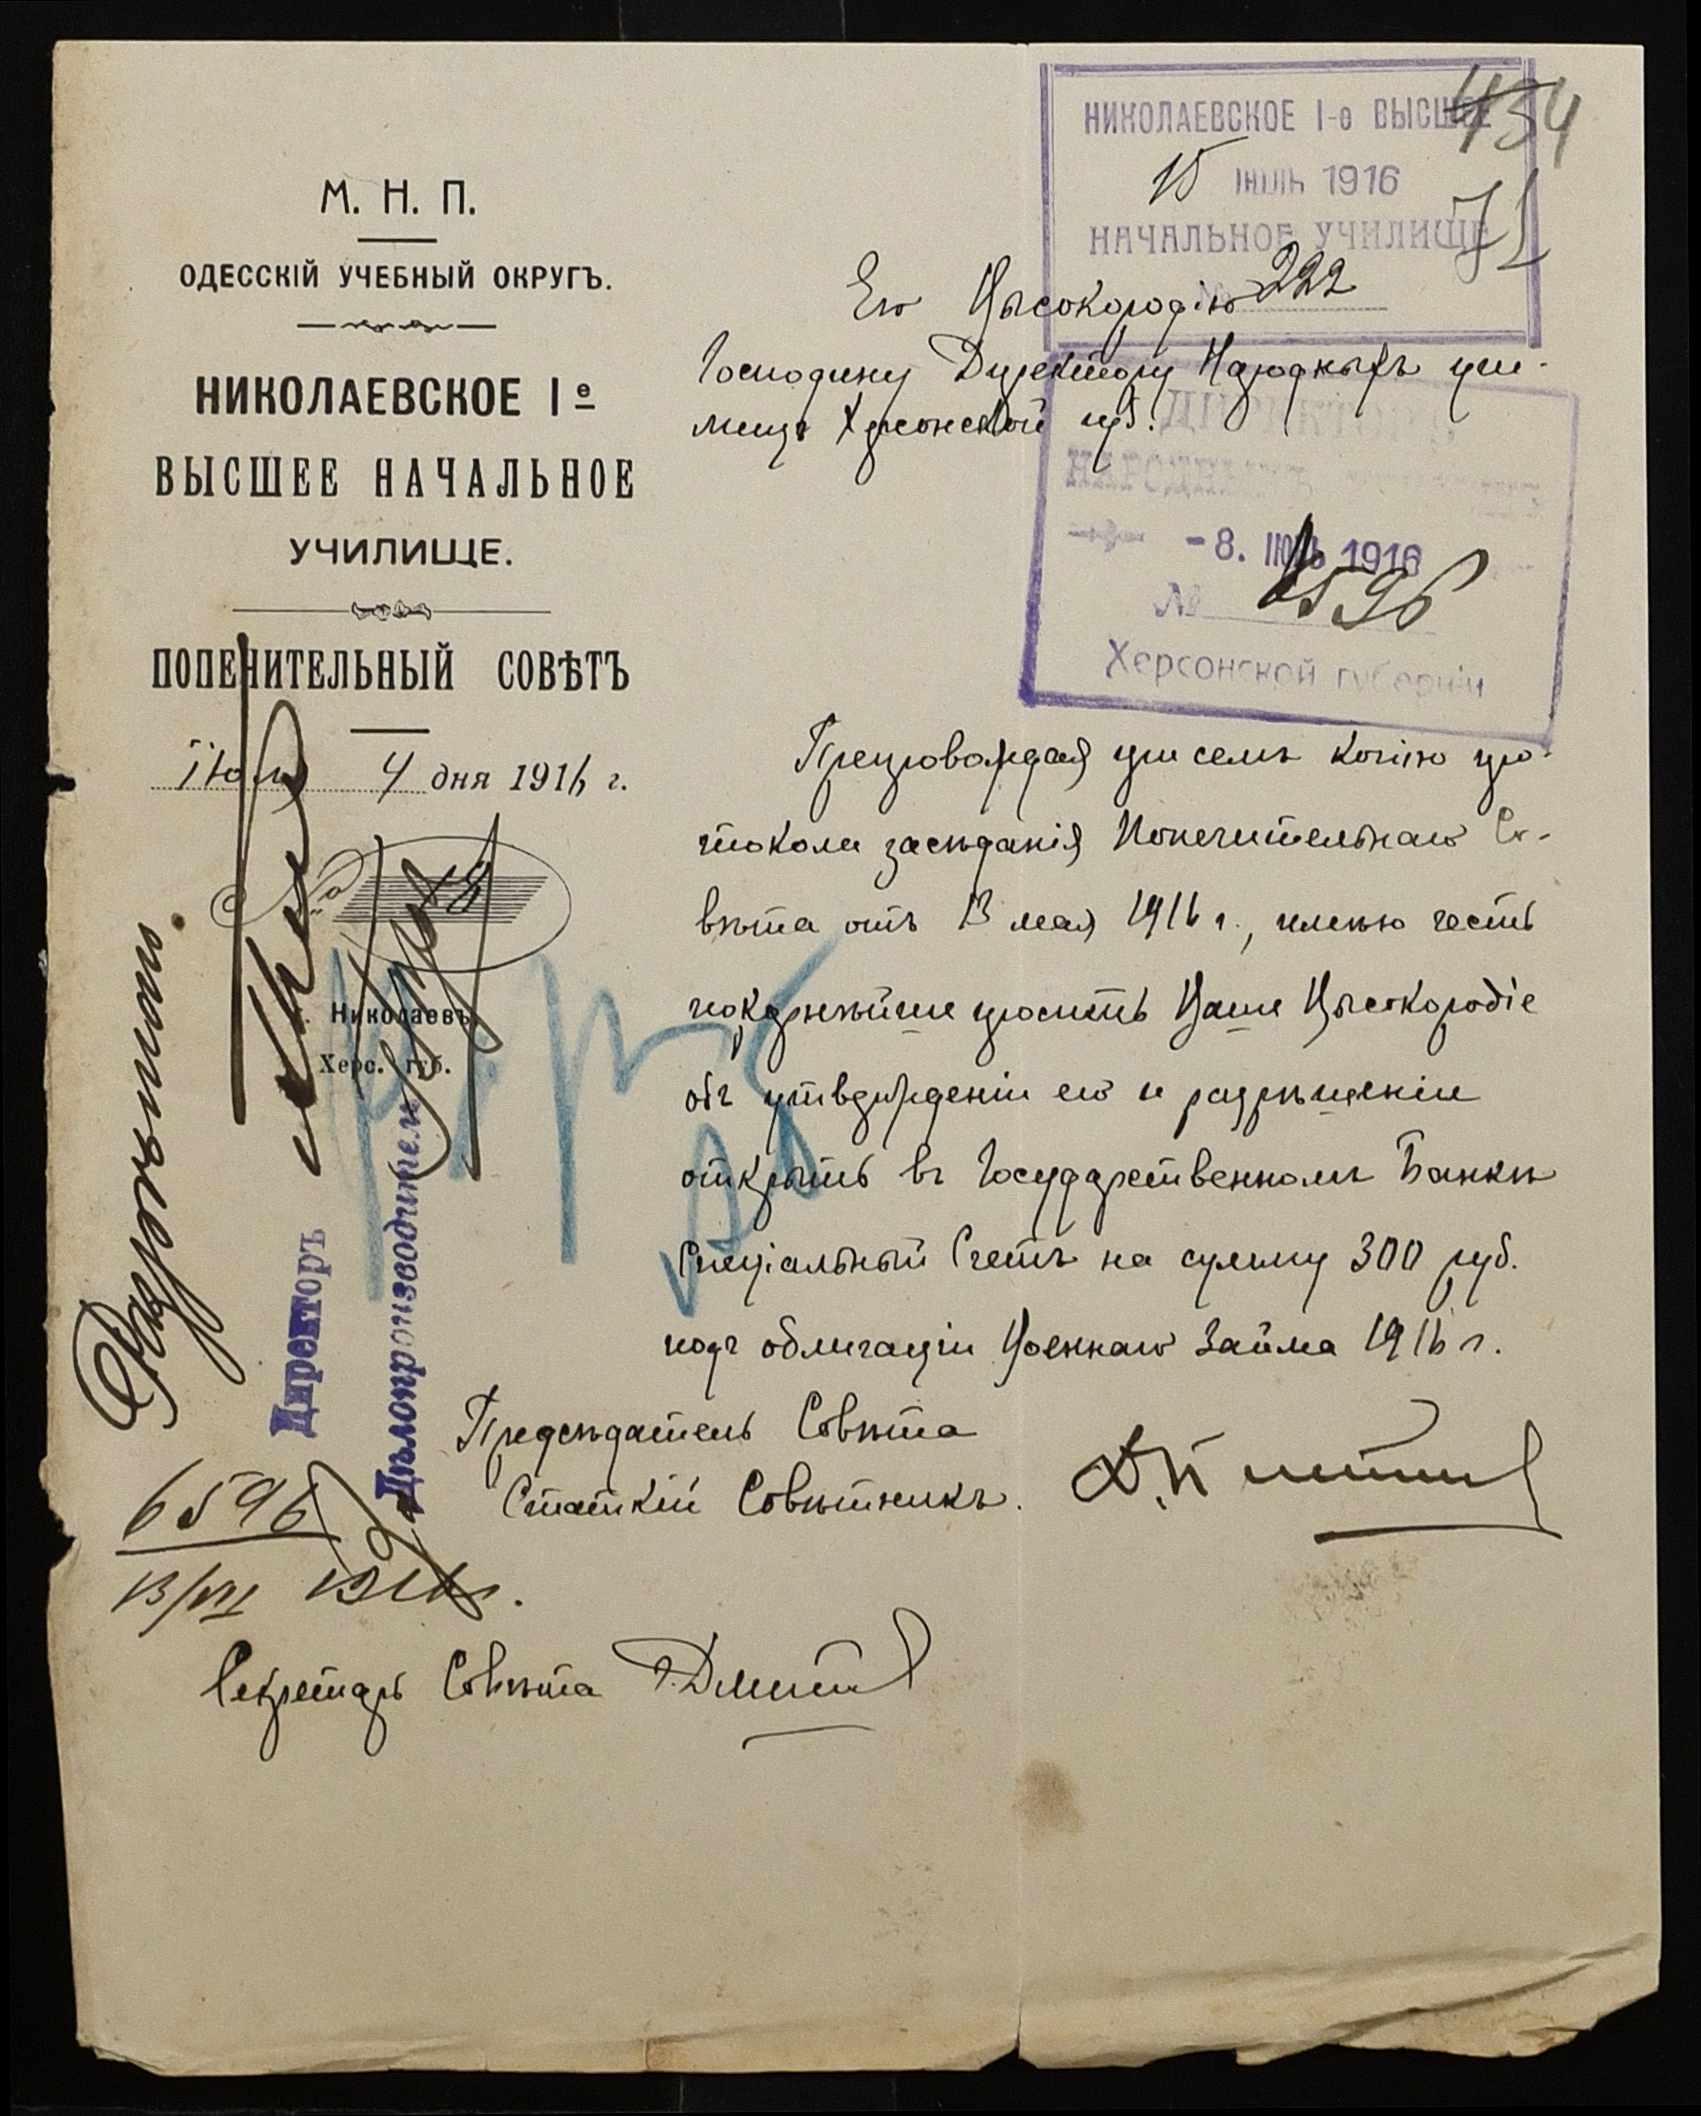 М. Н. П.
ОДЕССКІЙ УЧЕБНЫЙ ОКРУГЪ.
НИКОЛАЕВСКОЕ I е
ВЫСШЕЕ НАЧАЛЬНОЕ
УЧИЛИЩЕ.
ПОПЕЧИТЕЛЬНЫЙ СОВѢТЪ
4 дня 1916 г.
№
Николаевъ
Херс. губ.
434
71
НИКОЛАЕВСКОЕ I-е ВЫСШЕЕ
15 ІЮЛЬ 1916
НАЧАЛЬНОЕ УЧИЛИЩЕ
222
Его Высокородію
Господину Директору Народныхъ учи-
лищъ Херсонской губ.
НАРОДНЫХЪ
-8. 1916
№ 6596
Херсонской губерніи
Препровождая при семъ копію про-
токола засѣданія Попечительнаго Со-
вѣта отъ 13 мая 1916 г., имѣю честь
покорнѣйше просить Ваше Высокородіе
объ утвержденіи его и разрѣшеніи
открыть въ Государственномъ Банкѣ
Спеціальный Счетъ на сумму 300 руб.
подъ облигаціи Военнаго Займа 1916 г.
Предсѣдатель Совѣта
Статскій Совѣтникъ.
Секретарь Совѣта
Разрѣшить.
Директоръ
Дѣлопроизводитель
6596
13/VII 1916 г.